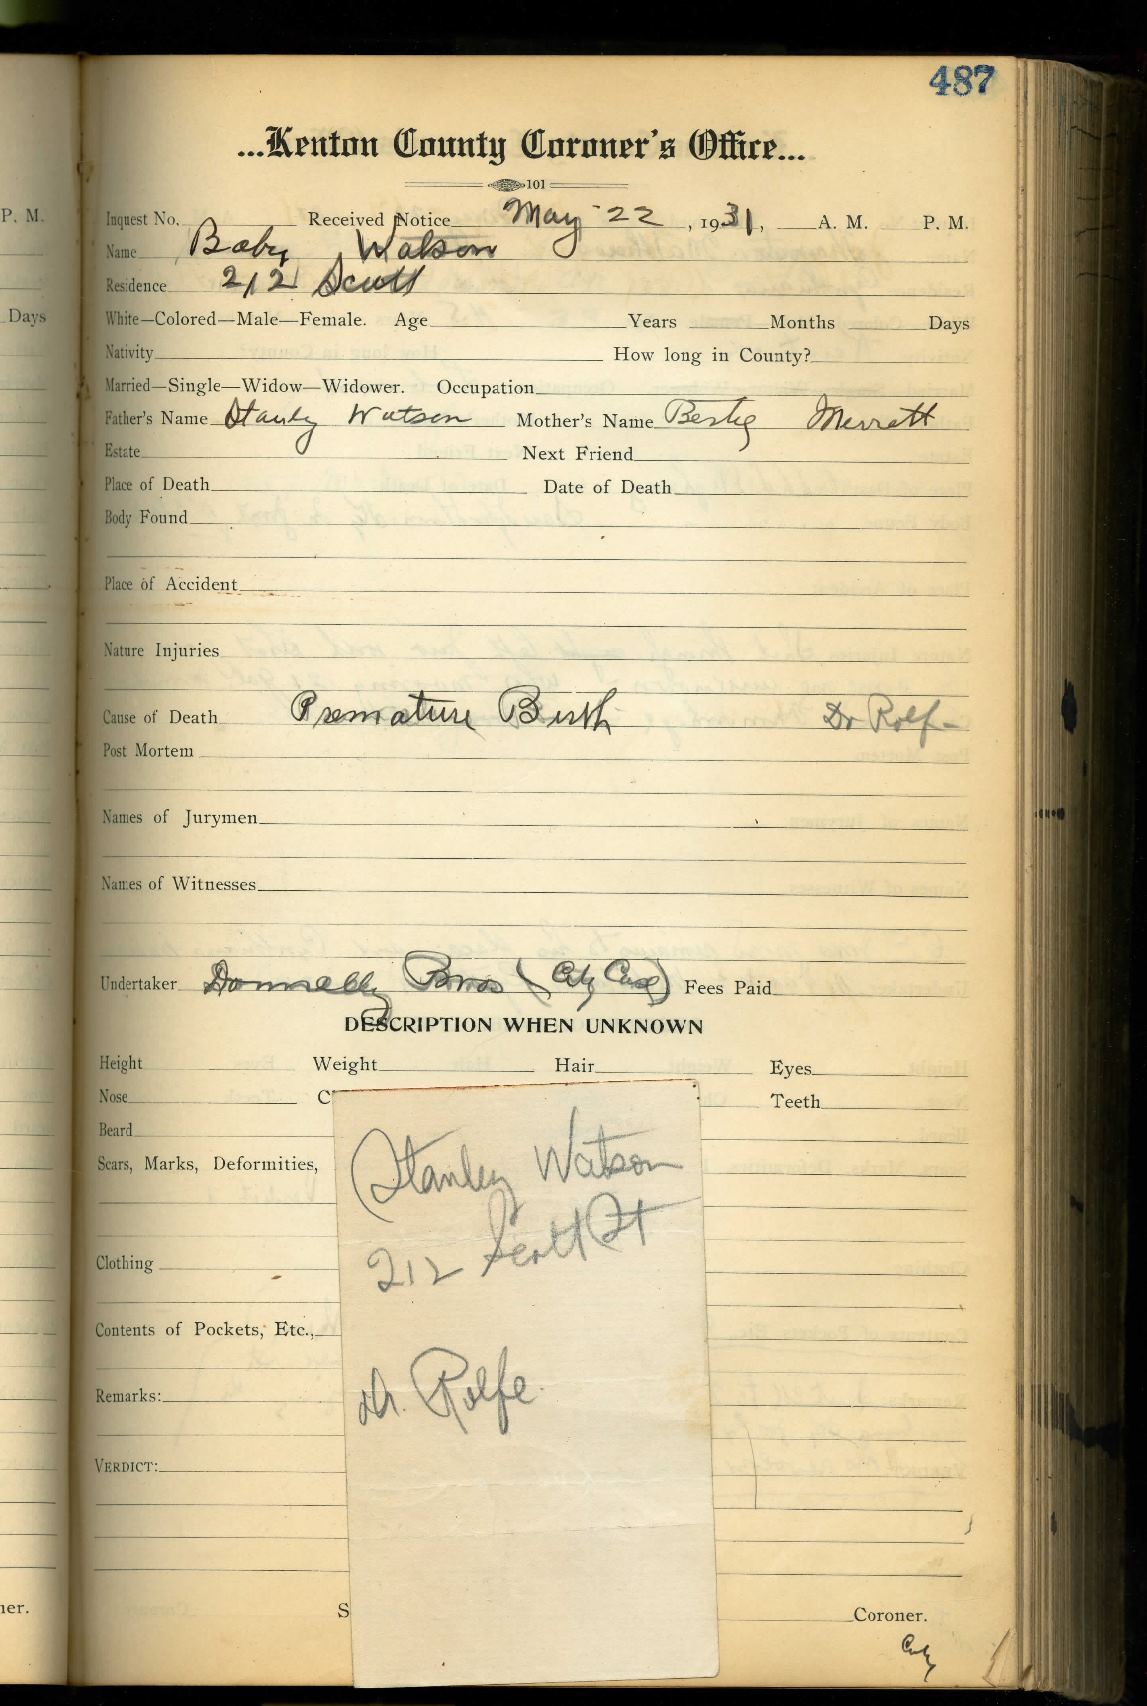 487
...Kenton County Coroner's Office...
101
P. M.
Inquest No. Received Notice May 22, 1931, A. M. P. M.
Name Baby Watson
Residence 212 Scott
Days
White—Colored—Male—Female. Age Years Months Days
Nativity How long in County?
Married—Single—Widow—Widower. Occupation
Father's Name Stanly Watson Mother's Name Merrett
Estate Next Friend
Place of Death Date of Death
Body Found
Place of Accident
Nature Injuries
Cause of Death Premature Birth Dr Rolf-
Post Mortem
Names of Jurymen
Names of Witnesses
Undertaker Donnelly Bros (City Case) Fees Paid
DESCRIPTION WHEN UNKNOWN
Height Weight Hair Eyes
Nose C Teeth
Beard
Scars, Marks, Deformities,
Clothing
Contents of Pockets, Etc.,
Remarks:
VERDICT:
Stanley Watson
212 Scott St
Dr. Rolfe
ner.
S Coroner.
City